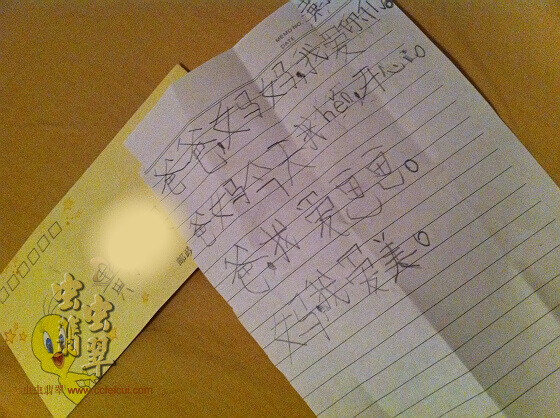 MEMO NO.
DATE
爸爸,妈妈,我爱你们。
爸妈今天我hěn开心。
爸,我爱
妈,我爱美。
虫虫
翡翠
虫虫翡翠 www.ccfeicui.com